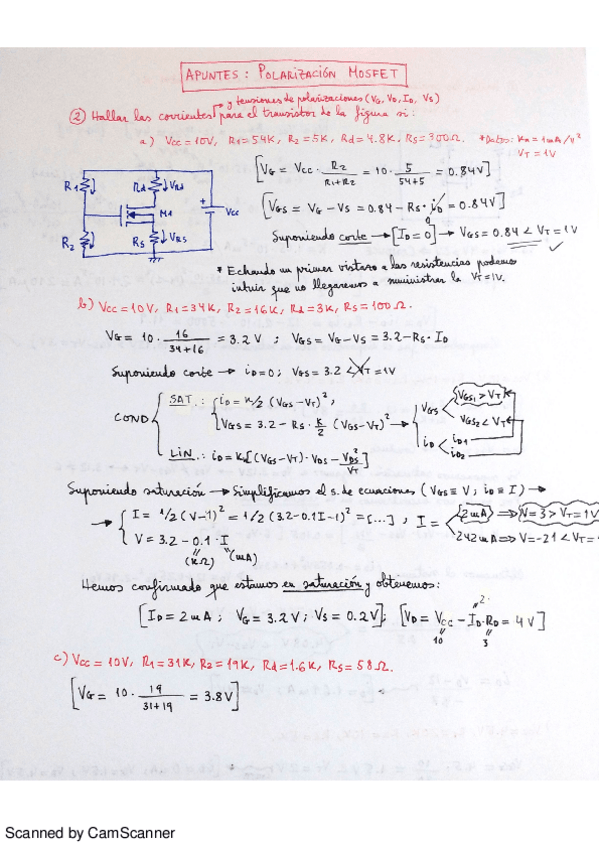 APUNTES: POLARIZACIÓN MOSFET
y tensiones de polarizaciones (VG, VD, ID, VS)
② Hallar las corrientes para el transistor de la figura si:
a) Vcc = 10V, R1 = 54K, R2 = 5K, Rd = 4.8K, Rs = 300Ω. *Datos: Kn = 1mA/V²
VT = 1V
[VG = Vcc · R2/(R1+R2) = 10 · 5/(54+5) = 0.84V]
R1 Rd VRd
M1 + Vcc
R2 Rs VRs
[VGS = VG - VS = 0.84 - RS · iD = 0.84V]
0
Suponiendo corte → [ID = 0] → VGS = 0.84 < VT = 1V ✓
* Echando un primer vistazo a las resistencias podemos
intuir que no llegaremos a suministrar la VT = 1V.
b) Vcc = 10V, R1 = 34K, R2 = 16K, Rd = 3K, Rs = 100Ω.
VG = 10 · 16/(34+16) = 3.2V ; VGS = VG - VS = 3.2 - RS · ID
Suponiendo corte → iD = 0; VGS = 3.2 < VT = 1V
COND
SAT.: iD = K/2 (VGS - VT)²,
VGS = 3.2 - RS · K/2 (VGS - VT)² → VGS VGS1 > VT VGS2 < VT
iD iD1 iD2
LIN.: iD = K[(VGS - VT) · VDS - VDS²/VT]
Suponiendo saturación → Simplificamos el s. de ecuaciones (VGS ≡ V; iD ≡ I) →
→ I = 1/2 (V-1)² = 1/2 (3.2 - 0.1I - 1)² = [...] ; I = 2mA ⇒ V = 3 > VT = 1V
V = 3.2 - 0.1 · I 242mA ⇒ V = -21 < VT =
(KΩ) (mA)
Hemos confirmado que estamos en saturación y obtenemos:
[ID = 2mA ; VG = 3.2V ; VS = 0.2V]; [VD = VCC - ID · RD = 4V]
2
10 3
c) Vcc = 10V, R1 = 31K, R2 = 19K, Rd = 1.6K, Rs = 58Ω.
[VG = 10 · 19/(31+19) = 3.8V]
Scanned by CamScanner